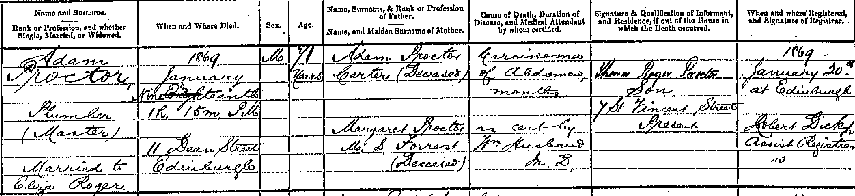 Name and Surname.
Rank or Profession, and whether Single, Married, or Widowed.
When and Where Died.
Sex.
Age.
Name, Surname, & Rank or Profession of Father.
Name, and Maiden Surname of Mother.
Cause of Death, Duration of Disease, and Medical Attendant by whom certified.
Signature & Qualification of Informant, and Residence, if out of the House in which the Death occurred.
When and where Registered, and Signature of Registrar.
Adam
Proctor,
Plumber
(Master)
Married to
Eliza Roger
1869,
January
Nineteenth
1h 15m P.M.
11 Dean Street
Edinburgh
M
71
Years
Adam Proctor
Carter (Deceased)
Margaret Proctor
M. S. Forrest
(Deceased)
Carcinoma
of Abdomen,
months
as cert. by
Wm Husband
M. D.
Roger Proctor
Son
7 St Vincent Street
Present
1869
January 20th
at Edinburgh
Robert Dick
Assist Registrar